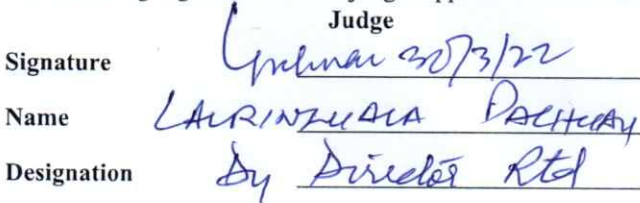 Judge
Signature 30/3/22
Name LALRINZUALA PACHUAU
Designation Dy Director Rtd